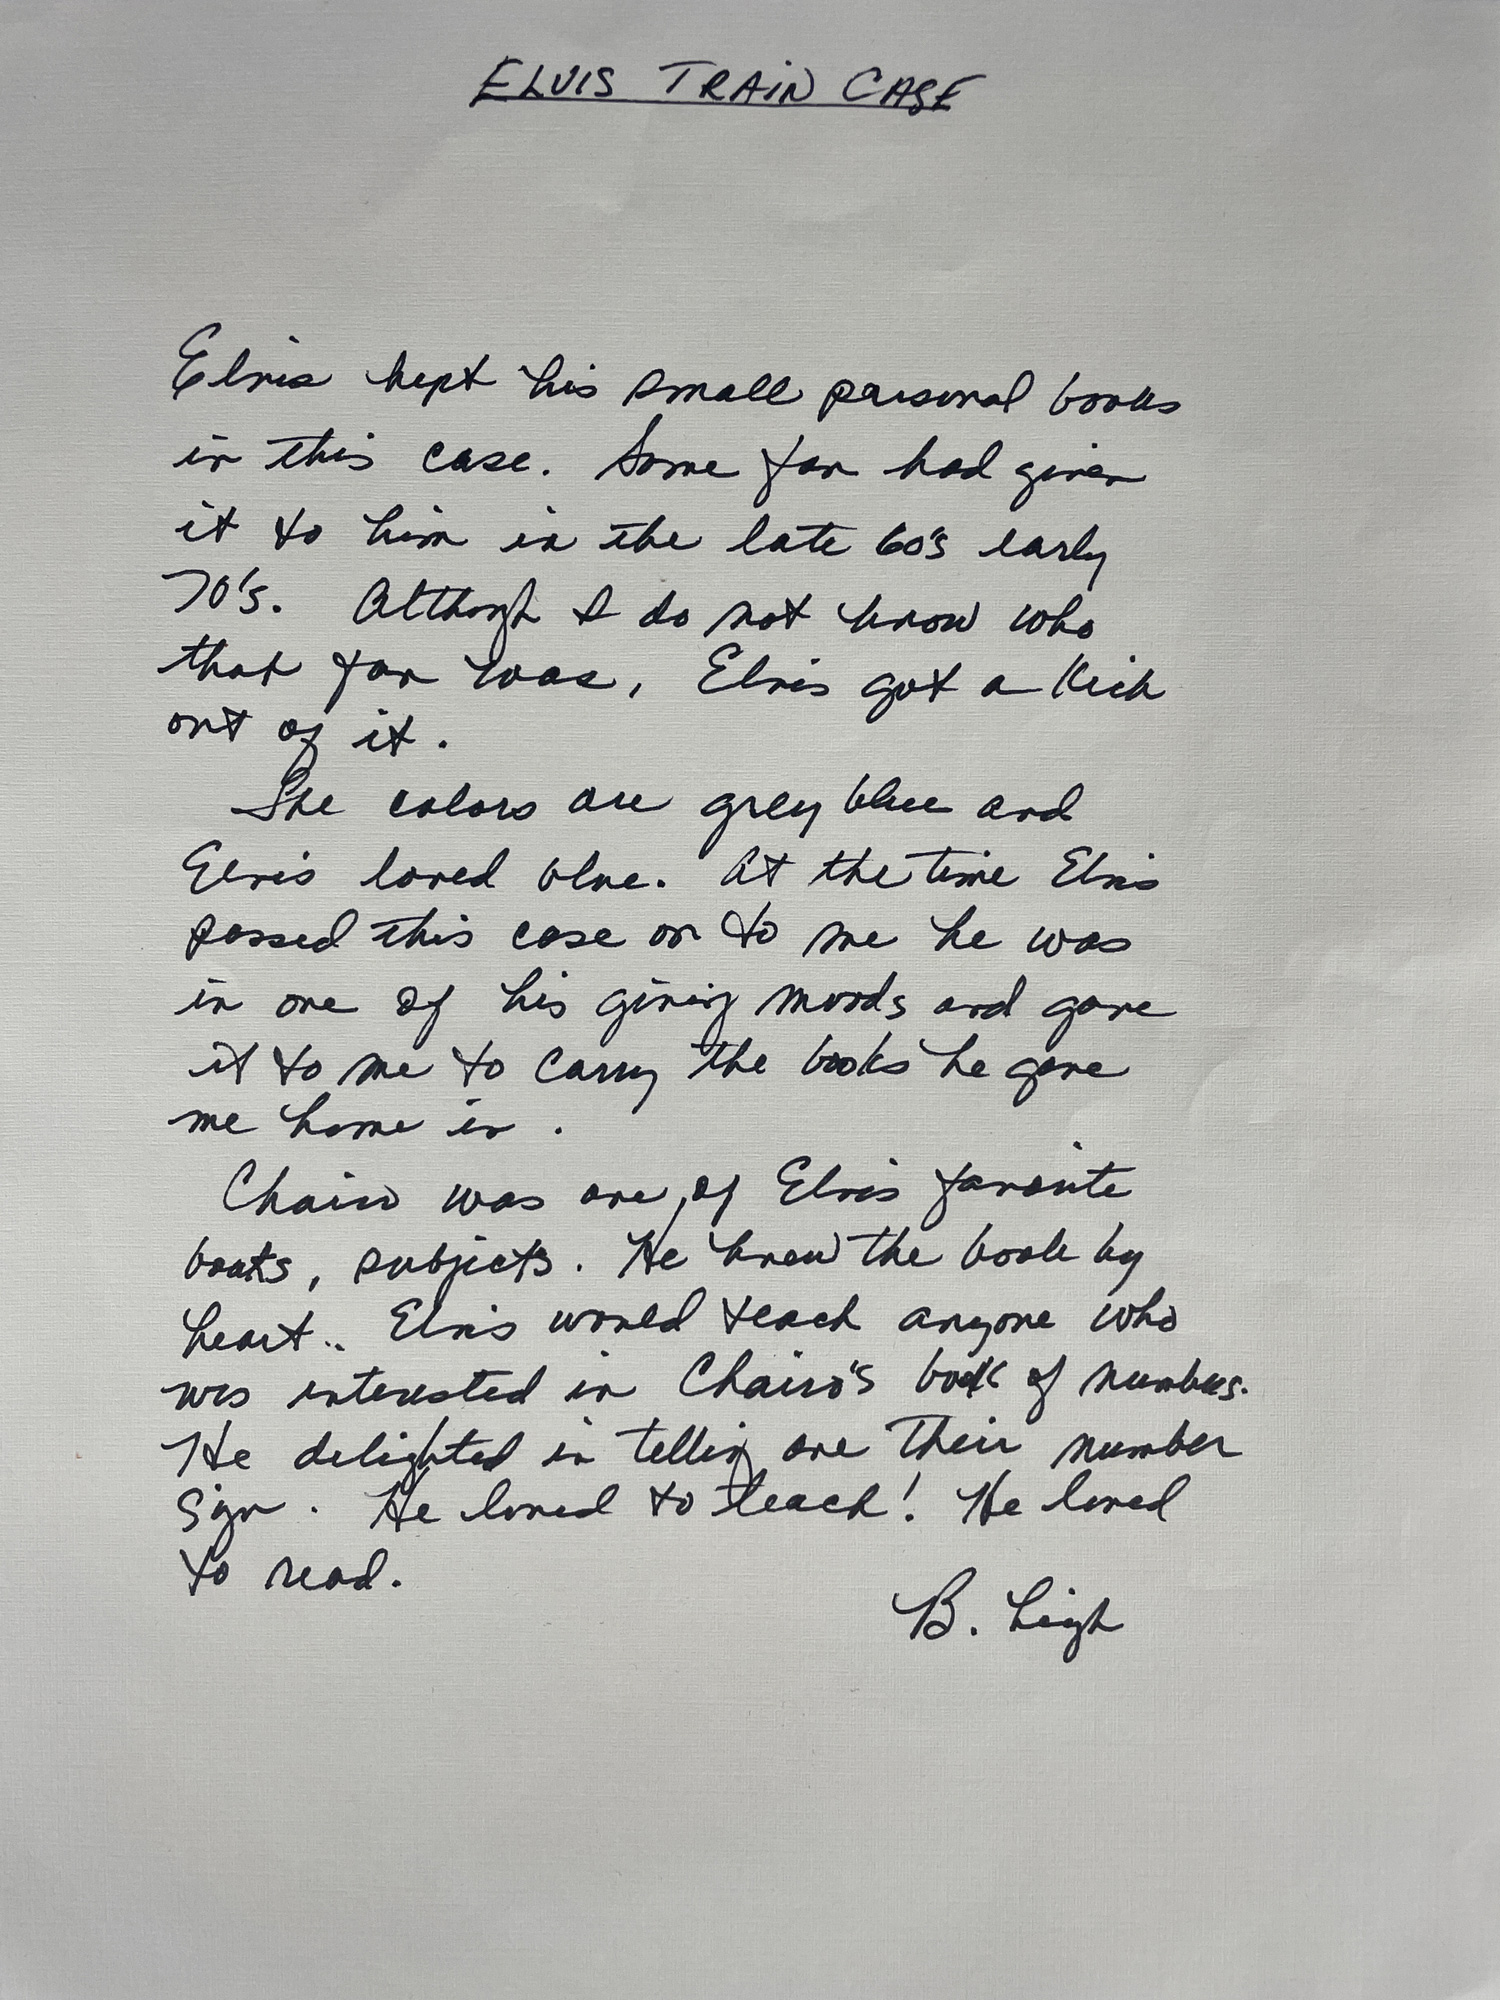 ELVIS TRAIN CASE
Elvis kept his small personal books
in this case. Some fan had given
it to him in the late 60's early
70's. Although I do not know who
that fan was, Elvis got a kick
out of it.
The colors are grey blue and
Elvis loved blue. At the time Elvis
passed this case on to me he was
in one of his giving moods and gave
it to me to carry the books he gave
me home in.
Chairo was one, of Elvis favorite
books, subjects. He knew the book by
heart.. Elvis would teach anyone who
was interested in Chairo's book of numbers.
He delighted in telling one their number
sign. He loved to teach! He loved
to read.
B. Leigh